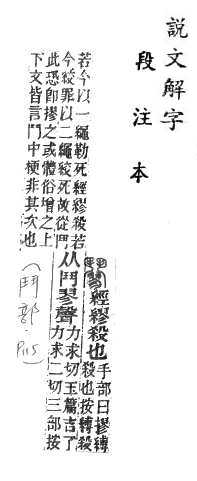 說文解字
段注本
經繆殺也
手部曰摎縛
殺也按縛殺
从鬥翏聲
力求切玉篇吉了
力求二切三部按
若今以一繩勒死經摎殺若
今絞罪以二繩絞死故從鬥
此恐卽摎之或體俗增之上
下文皆言鬥中梗非其次也
(鬥部. P115)